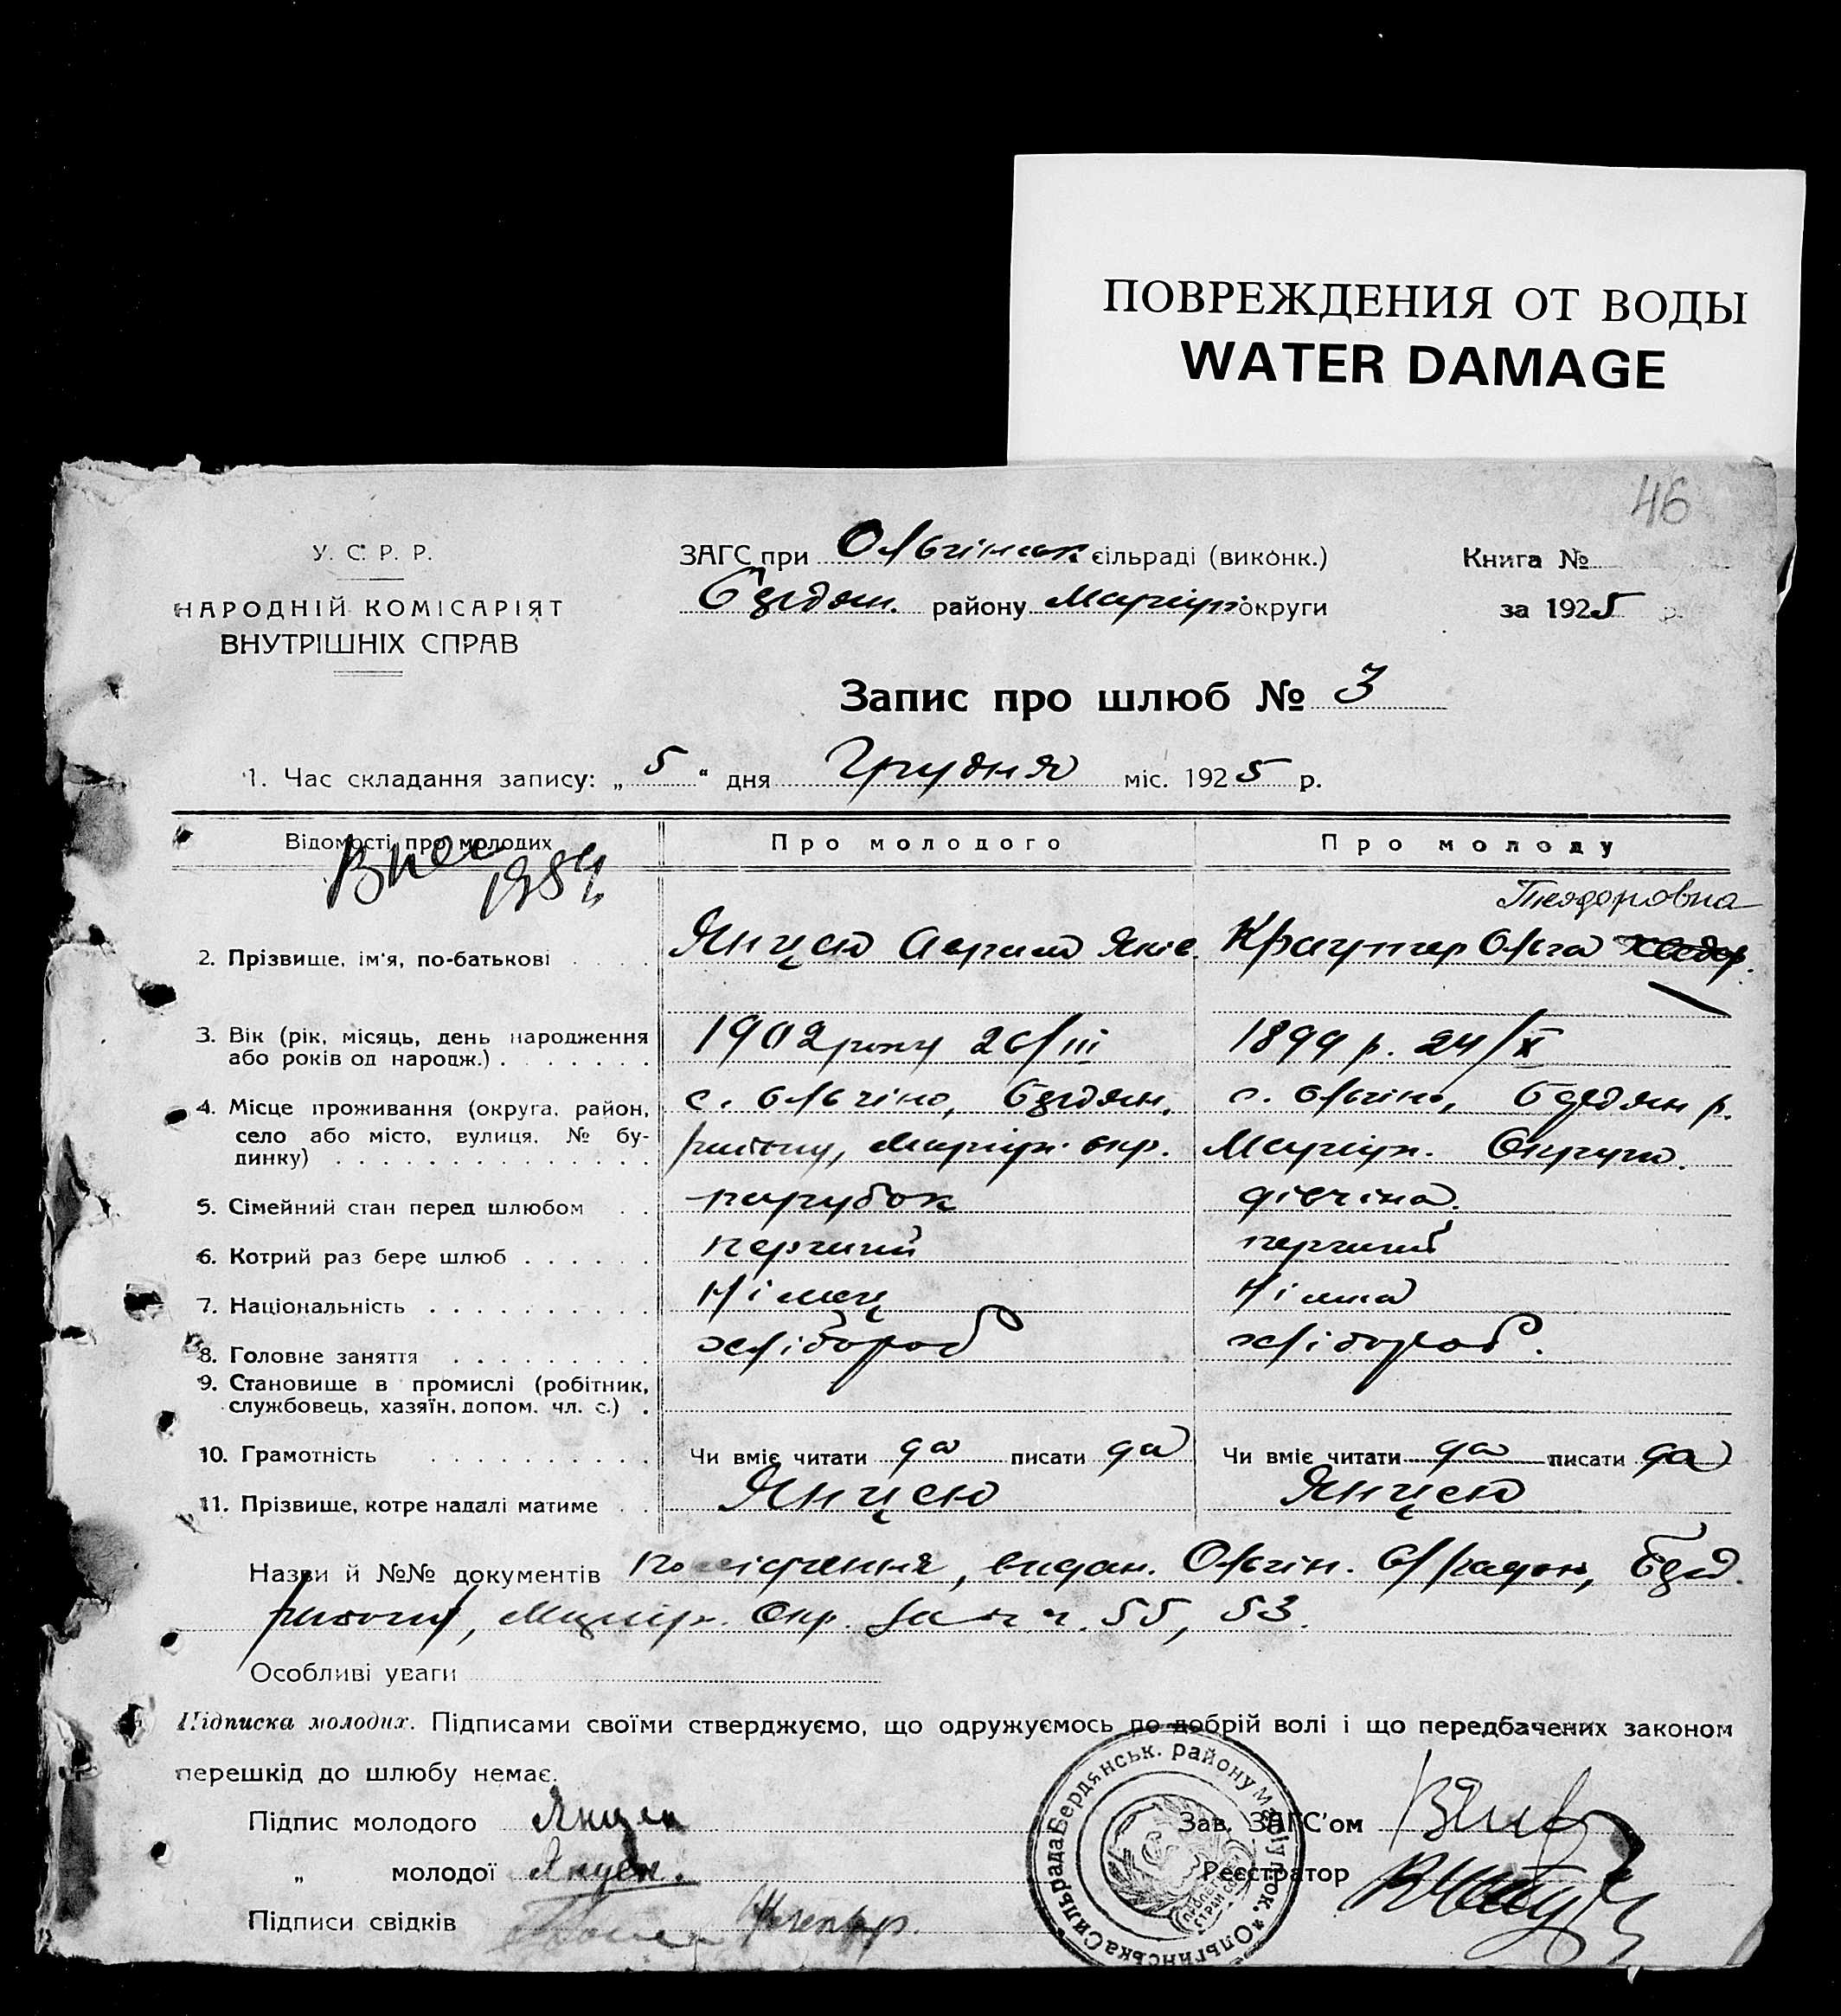 ПОВРЕЖДЕНИЯ ОТ ВОДЫ
WATER DAMAGE
46
У. С. Р. Р.
НАРОДНІЙ КОМІСАРІЯТ
ВНУТРІШНІХ СПРАВ
ЗАГС при Ольгінськ сільраді (виконк.)
району Маріуп. округи
Книга №
за 1925 р.
Запис про шлюб № 3
1. Час складання запису: „ 5 " дня Грудня міс. 1925 р.
Відомості про молодих
Про молодого
Про молоду
1984
Теодоровна
2. Прізвище, ім'я, по-батькові . . . .
Янцен Аврам Яків.
Ольга
3. Вік (рік, місяць, день народження
або років од народж.) . . . . . . .
1902 року 26/III
1899 р. 24/X
4. Місце проживання (округа, район,
село або місто, вулиця, № бу-
динку) . . . . . . . . . . . . . .
с. Ольгіно,
району, Маріуп. окр.
с. Ольгіно, р.
Маріуп. Округи.
5. Сімейний стан перед шлюбом . .
парубок
дівчіна.
6. Котрий раз бере шлюб . . . . . .
перший
перший
7. Національність . . . . . . . . . .
Німец
Німка
8. Головне заняття . . . . . . . . .
хлібороб
хлібороб.
9. Становище в промислі (робітник,
службовець, хазяїн, допом. чл. с.) .
10. Грамотність . . . . . . . . . .
Чи вміє читати да писати да
Чи вміє читати да писати да
11. Прізвище, котре надалі матиме . .
Янцен
Янцен
Назви й №№ документів посвідчення, видан. Ольгін.
району, Маріуп. Окр. за 55, 53.
Особливі уваги
Підписка молодих. Підписами своїми стверджуємо, що одружуємось по добрій волі і що передбачених законом
перешкід до шлюбу немає.
Підпис молодого Янцен
„ молодої Янцен.
Підписи свідків
Зав. ЗАГС'ом
Реєстратор
Ольгінська Сильрада Бердянськ. району Маріупок.